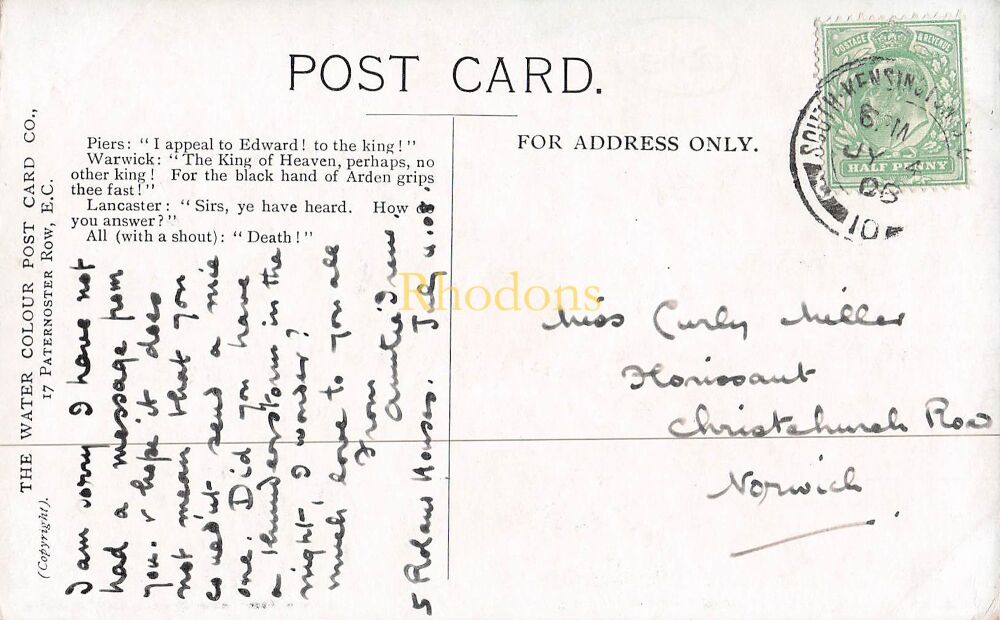 POST CARD.
THE WATER COLOUR POST CARD CO.,
17 PATERNOSTER ROW, E.C.
(Copyright).
Piers: "I appeal to Edward! to the king!"
Warwick: "The King of Heaven, perhaps, no
other king! For the black hand of Arden grips
thee fast!"
Lancaster: "Sirs, ye have heard. How do
you answer?"
All (with a shout): "Death!"
I am sorry I have not
had a message from
you. I hope it does
not mean that you
could'nt send a nice
one. Did you have
a thunderstorm in the
night, I wonder?
much love to you all
From
Auntie
5 Roland Houses. July 4.08.
FOR ADDRESS ONLY.
POSTAGE & REVENUE
HALF PENNY
SOUTH KENSINGTON
JY 4
08
10
Rhodons
Miss Curly Miller
Florissant
Christchurch Road
Norwich